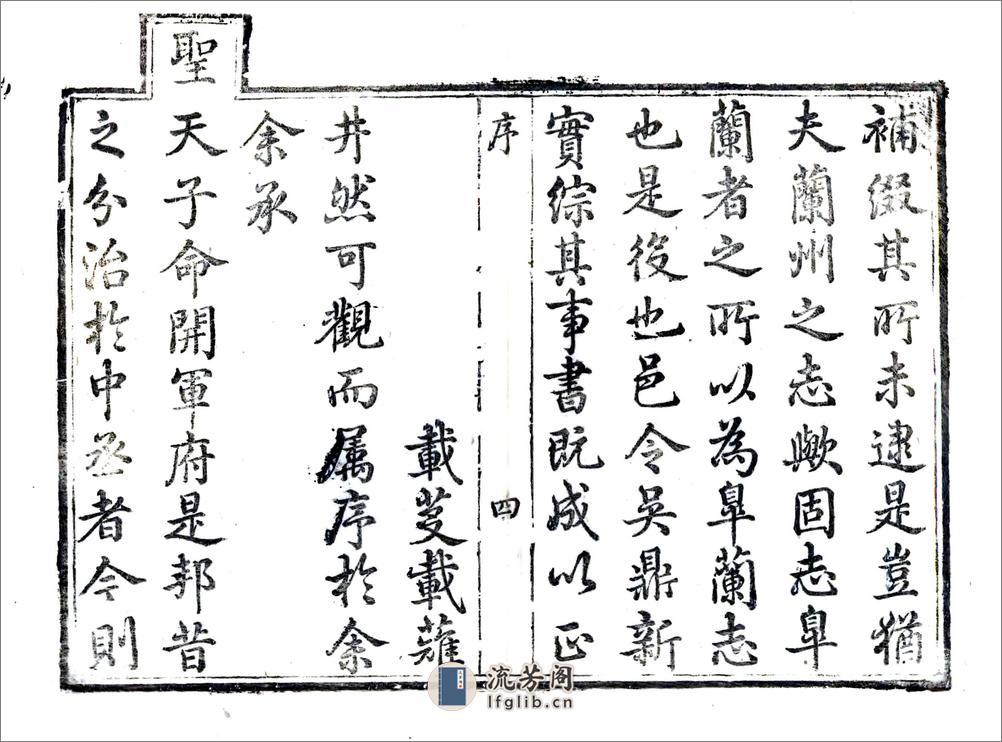 補綴其所未逮是豈猶
夫蘭州之志歟固志皐
蘭者之所以為皐蘭志
也是後也邑令吳鼎新
實綜其事書既成以正
序 四
載芟載薙
井然可觀而屬序於余
余承
聖
天子命開軍府是邦昔
之分治於中丞者今則
流芳阁
lfglib.cn